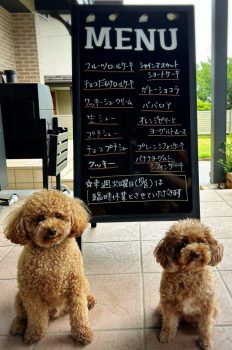 MENU
フルーツロールケーキ
チョコだんロールケーキ
クッキーシュークリーム
生シュー
プチシュー
チョコプチシュー
クッキー
シャインマスカット
ショートケーキ
ガトーショコラ
ババロア
オレンジゼリーと
ヨーグルトムース
プレーンシフォンケーキ
バナナヨーグルト
シフォンケーキ
☆来週火曜日は
臨時休業とさせていただきます